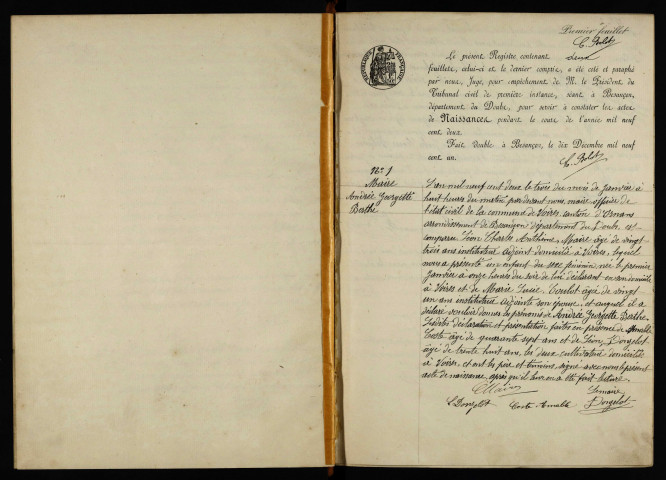 Premier feuillet
C. Bolot
Le présent Registre, contenant deux
feuillets, celui-ci et le dernier compris, a été coté et paraphé
par nous, Juge, pour empêchement de M. le Président du
Tribunal civil de première instance, séant à Besançon,
département du Doubs, pour servir à constater les actes
de Naissances pendant le cours de l'année mil neuf
cent deux.
Fait double à Besançon, le dix Décembre mil neuf
cent un.
C. Bolot
REPUBLIQUE FRANÇAISE
No 1
Maire
Andrée Georgette
Berthe
L'an mil neuf cent deux le trois du mois de Janvier à
huit heures du matin par devant nous, maire, officier de
l'état civil de la commune de Voires, canton d'Ornans
arrondissement de Besançon, département du Doubs, est
comparu Léon Charles Anthème Maire âgé de vingt
trois ans instituteur adjoint domicilié à Voires, lequel
nous a présenté un enfant du sexe féminin, née le premier
Janvier à onze heures du soir de lui déclarant en son domicile
à Voires et de Marie Lucie âgée de vingt
un ans institutrice adjointe son épouse, et auquel il a
déclaré vouloir donner les prénoms de Andrée Georgette Berthe.
Lesdites déclaration et présentation faites en présence de Amable
Coste âgé de quarante sept ans et de Léon Dorgelot
âgé de trente huit ans, les deux cultivateurs domiciliés
à Voires, et ont les père et témoins, signé avec nous le présent
acte de naissance, après qu'il leur en a été fait lecture.
Maire
Le maire
L Dorgelot Coste Amable Dorgelot